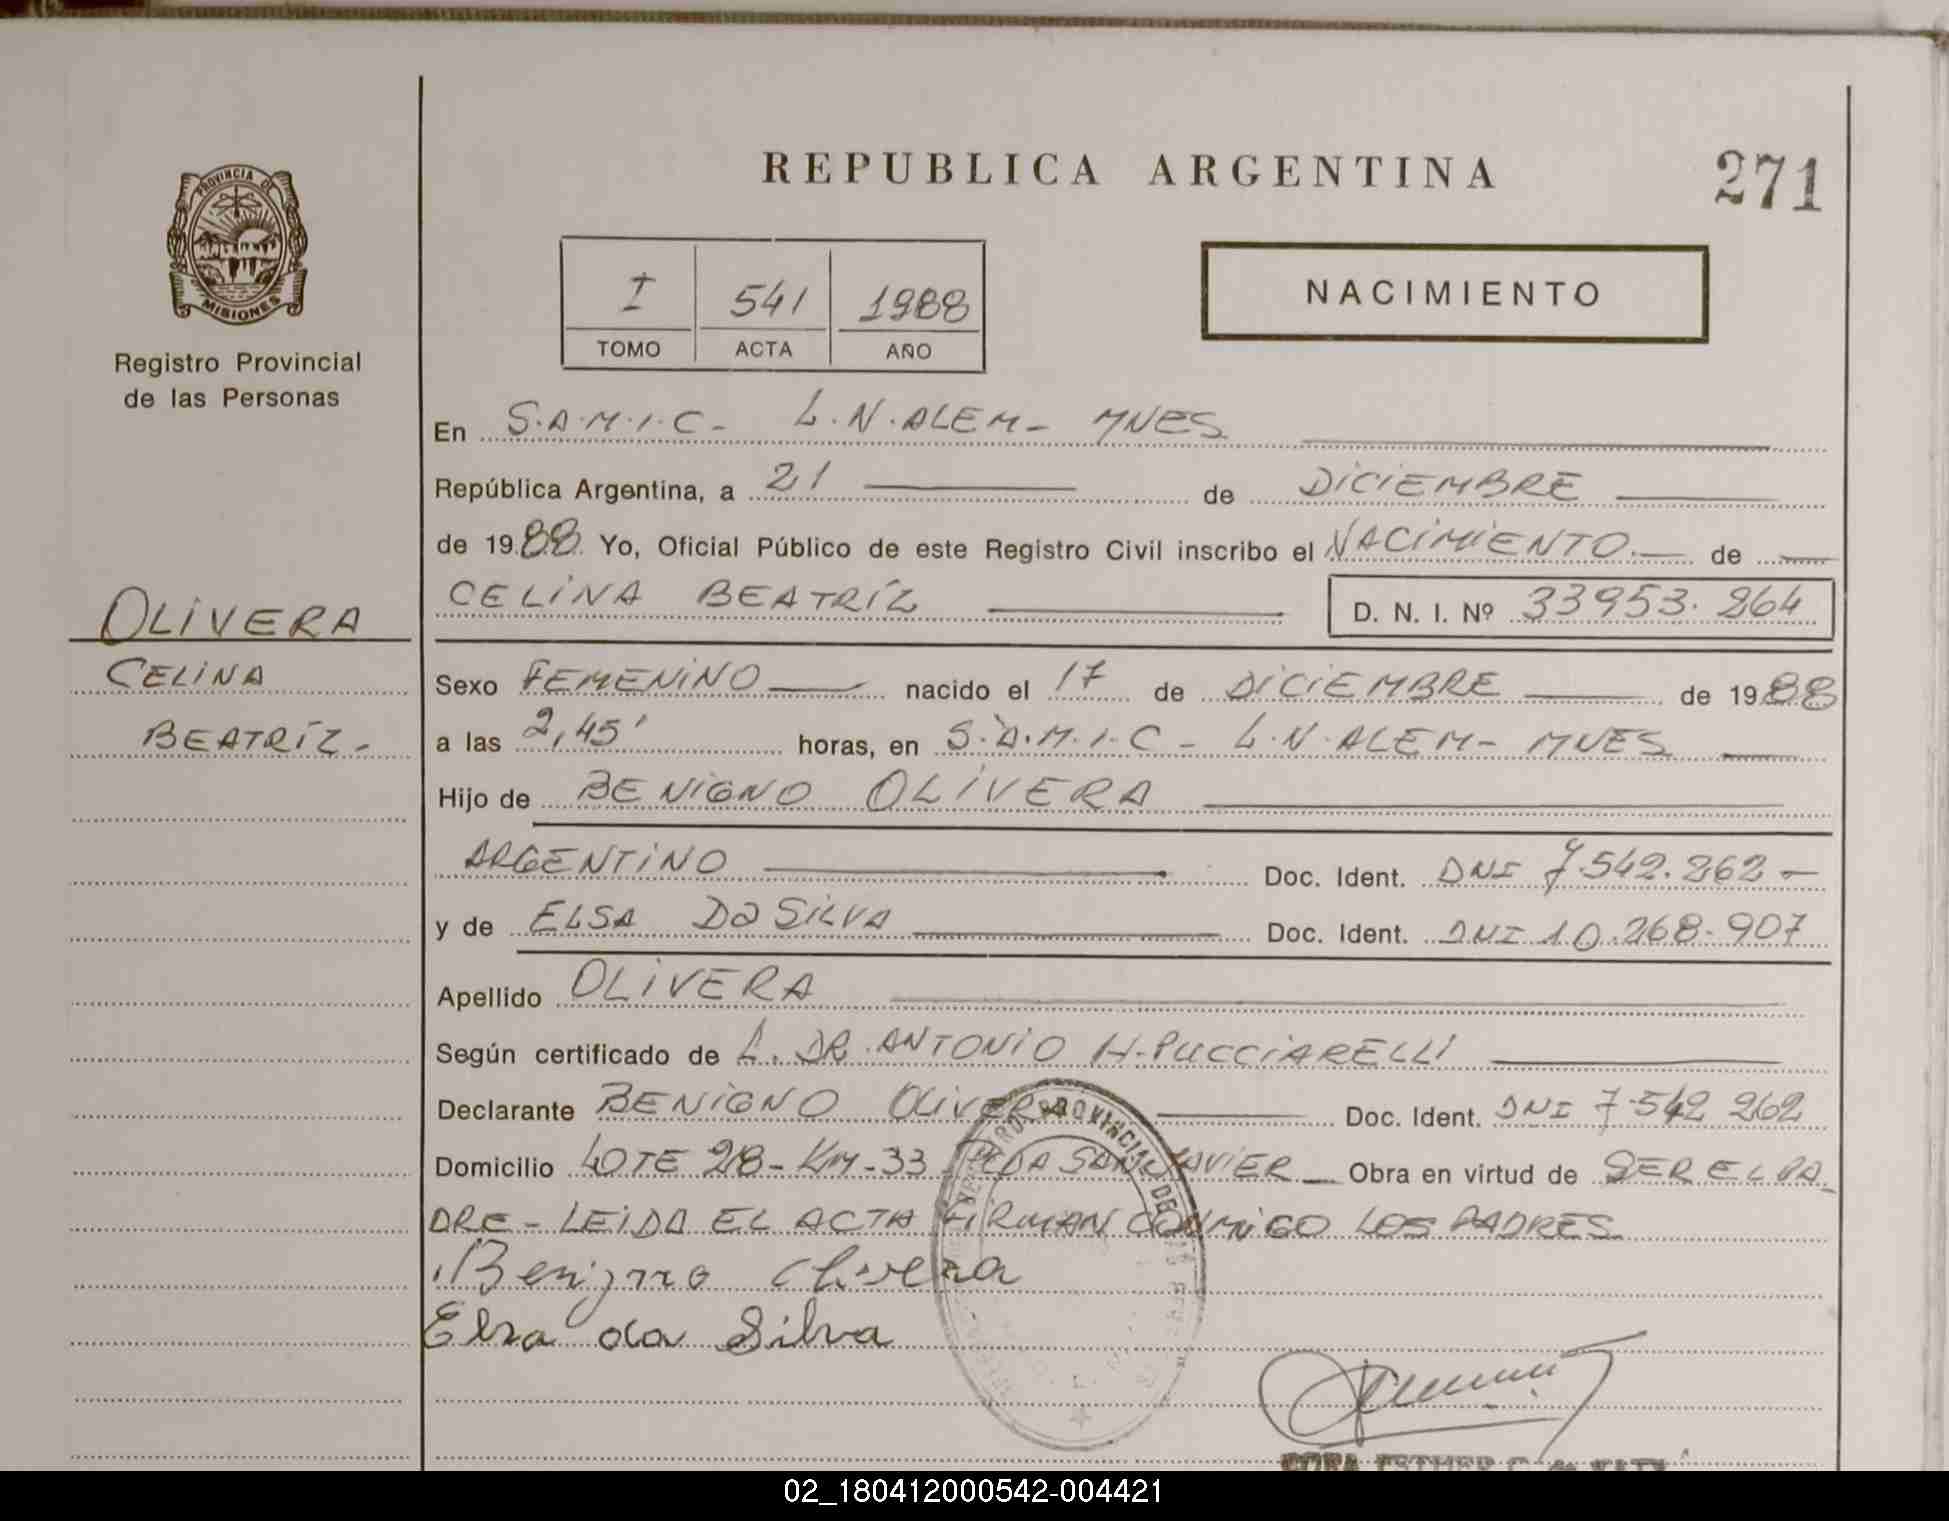 REPUBLICA ARGENTINA
271
PROVINCIA DE
MISIONES
Registro Provincial
de las Personas
I 541 1988
TOMO ACTA AÑO
NACIMIENTO
En S.A.M.I.C - L.N.ALEM - MNES
República Argentina, a 21 de DICIEMBRE
de 1988 Yo, Oficial Público de este Registro Civil inscribo el NACIMIENTO de
CELINA BEATRÍZ D. N. I. Nº 33953.264
OLIVERA
CELINA
BEATRÍZ -
Sexo FEMENINO nacido el 17 de DICIEMBRE de 1988
a las 2,45' horas, en S.A.M.I.C - L.N.ALEM - MNES
Hijo de BENIGNO OLIVERA
ARGENTINO Doc. Ident. DNI 7.542.262 -
y de ELSA DA SILVA Doc. Ident. DNI 10.268.907
Apellido OLIVERA
Según certificado de L. DR. ANTONIO H. PUCCIARELLI
Declarante BENIGNO OLIVERA Doc. Ident. DNI 7.542 262
Domicilio LOTE 28 - KM - 33 SAN JAVIER Obra en virtud de SER EL PA-
DRE - LEIDA EL ACTA FIRMAN CONMIGO LOS PADRES
Benigno Olivera
Elsa da Silva
02_180412000542-004421